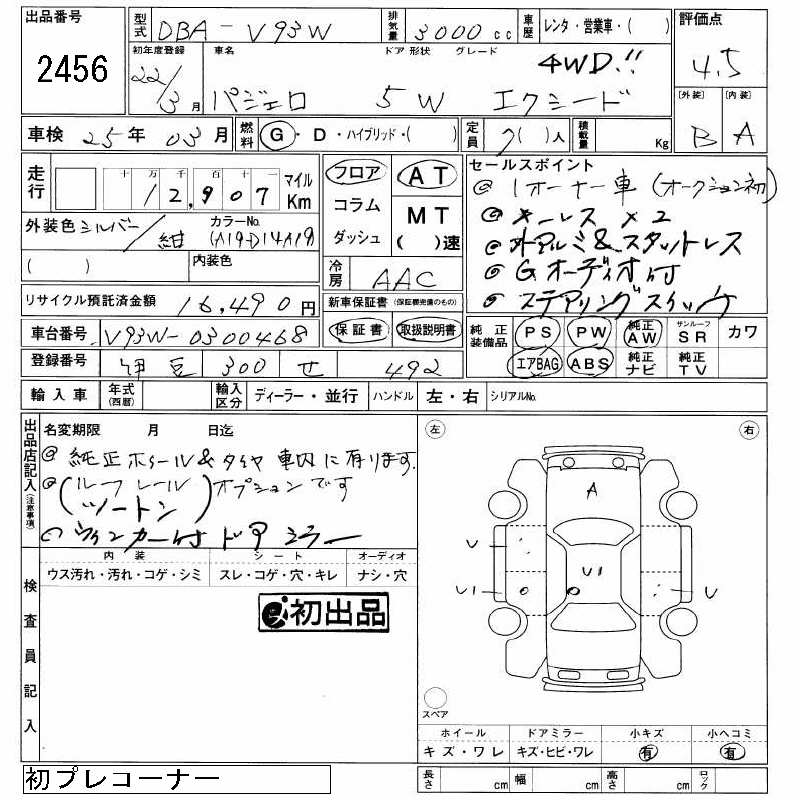 出品番号 型式 DBA-V93W 排気量 3000cc 車歴 レンタ・営業車・( ) 評価点
2456 初年度登録 車名 ドア 形状 グレード 4WD!! 4.5
22/3月 パジェロ 5W エクシード [外装] [内装]
車検 25年03月 燃料 G・D・ハイブリッド・( ) 定員 7( )人 積載量 Kg B A
走行 十万 万 千 百 十 12,907 マイル Km フロア AT セールスポイント
コラム MT ◎1オーナー車(オークション初)
外装色 シルバー/紺 カラーNo. (A19-D14A19) ダッシュ ( )速 ◎キーレス×2
( ) 内装色 冷房 AAC ◎外アルミ&スタットレス
◎Gオーディオ付
リサイクル預託済金額 16,490円 新車保証書 (保証書完備のもの) ◎ステアリングスイッチ
車台番号 V93W-0300468 保証書 取扱説明書 純正装備品 PS PW 純正AW サンルーフSR カワ
登録番号 伊豆 300 せ 492 エアBAG ABS 純正ナビ 純正TV
輸入車 年式(西暦) 輸入区分 ディーラー・並行 ハンドル 左・右 シリアルNo.
出品店記入(注意事項) 名変期限 月 日迄 左 右
◎純正ホイール&タイヤ車内に有ります.
◎(ルーフレール ツートン)オプションです
◎ウインカー付ドアミラー
A
U U1 U1 U
内装 シート オーディオ
ウス汚れ・汚れ・コゲ・シミ スレ・コゲ・穴・キレ ナシ・穴
検査員記入
初出品
スペア
ホイール ドアミラー 小キズ 小ヘコミ
キズ・ワレ キズ・ヒビ・ワレ 有 有
初プレコーナー 長さ cm 幅 cm 高さ cm ロック